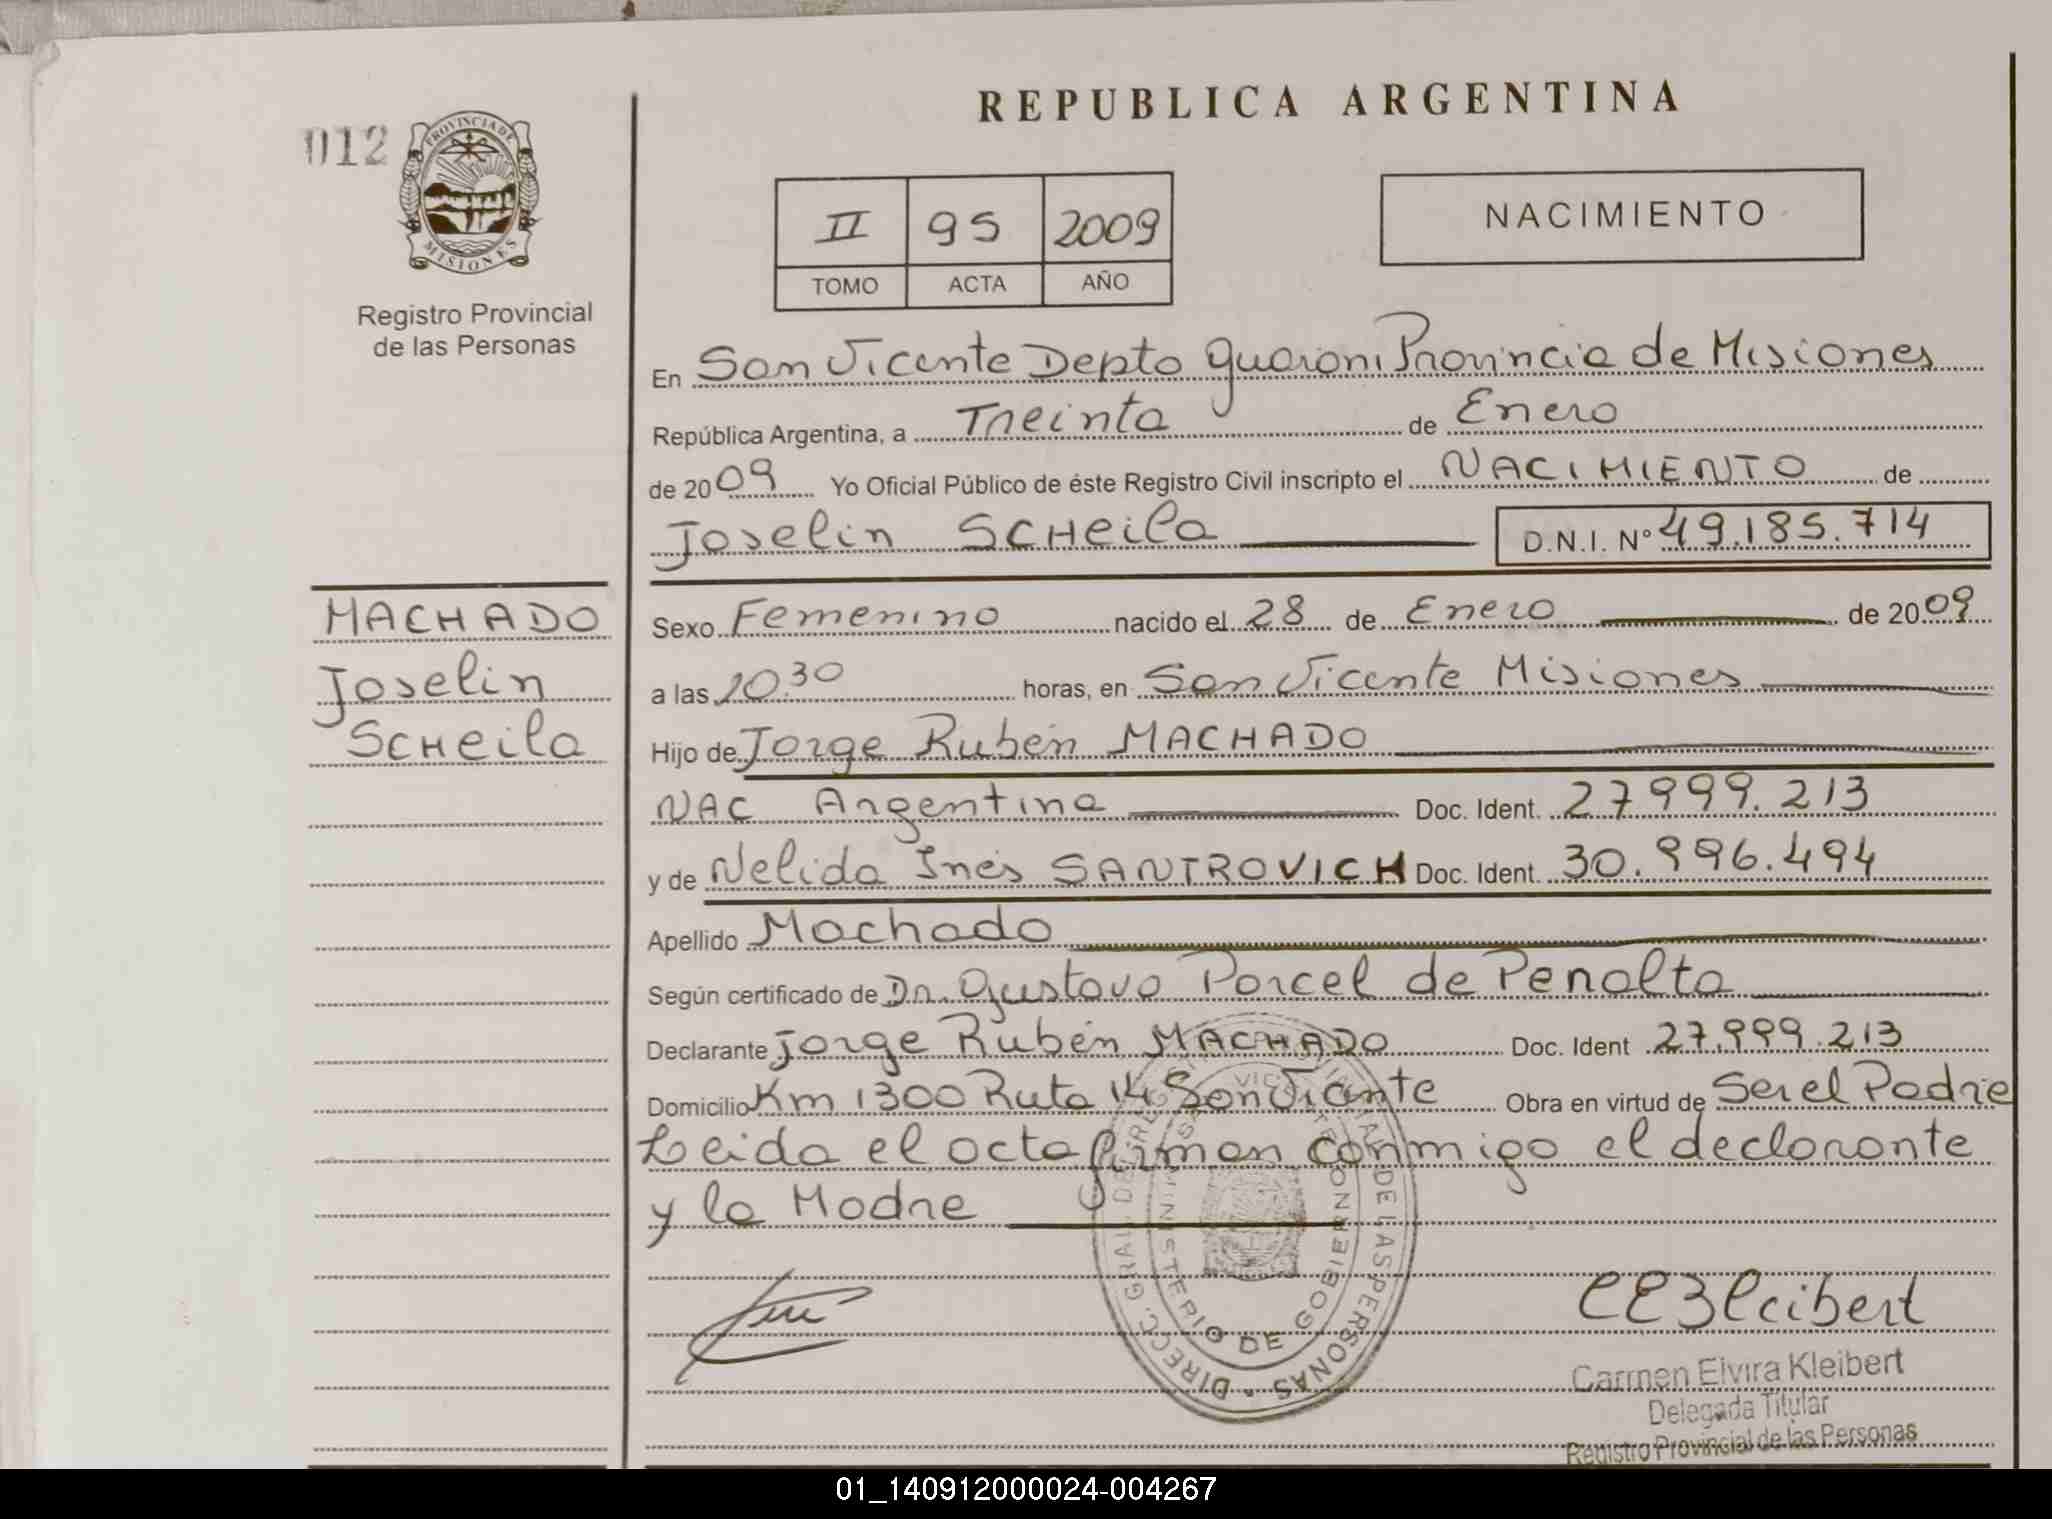 REPUBLICA ARGENTINA
012
PROVINCIA DE
MISIONES
Registro Provincial
de las Personas
II 95 2009
TOMO ACTA AÑO
NACIMIENTO
En San Vicente Depto Guarani Provincia de Misiones
República Argentina, a Treinta de Enero
de 2009 Yo Oficial Público de éste Registro Civil inscripto el NACIMIENTO de
Joselin SCHeila D.N.I. Nº 49.185.714
MACHADO
Joselin
SCHeila
Sexo Femenino nacido el 28 de Enero de 2009
a las 10.30 horas, en San Vicente Misiones
Hijo de Jorge Rubén MACHADO
NAC Argentina Doc. Ident. 27999.213
y de Nelida Inés SANTROVICH Doc. Ident. 30.996.494
Apellido Machado
Según certificado de Dr. Gustavo Porcel de Peralta
Declarante Jorge Rubén MACHADO Doc. Ident 27.999.213
Domicilio Km 1300 Ruta 14 San Vicente Obra en virtud de Ser el Padre
Leida el acta firman conmigo el declarante
y la Madre
DIRECC. GRAL. DE DE LAS PERSONAS
MINISTERIO DE GOBIERNO
Carmen Elvira Kleibert
Delegada Titular
Registro Provincial de las Personas
01_140912000024-004267